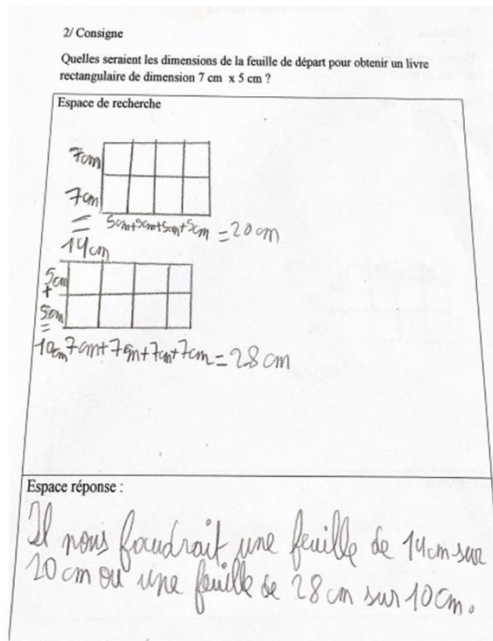 2/ Consigne
Quelles seraient les dimensions de la feuille de départ pour obtenir un livre
rectangulaire de dimension 7 cm x 5 cm ?
Espace de recherche
7cm
7cm
=
14cm
5cm+5cm+5cm+5cm = 20cm
5cm
+
5cm
=
10cm
7cm+7cm+7cm+7cm = 28cm
Espace réponse :
Il nous faudrait une feuille de 14cm sur
20cm ou une feuille de 28cm sur 10cm.